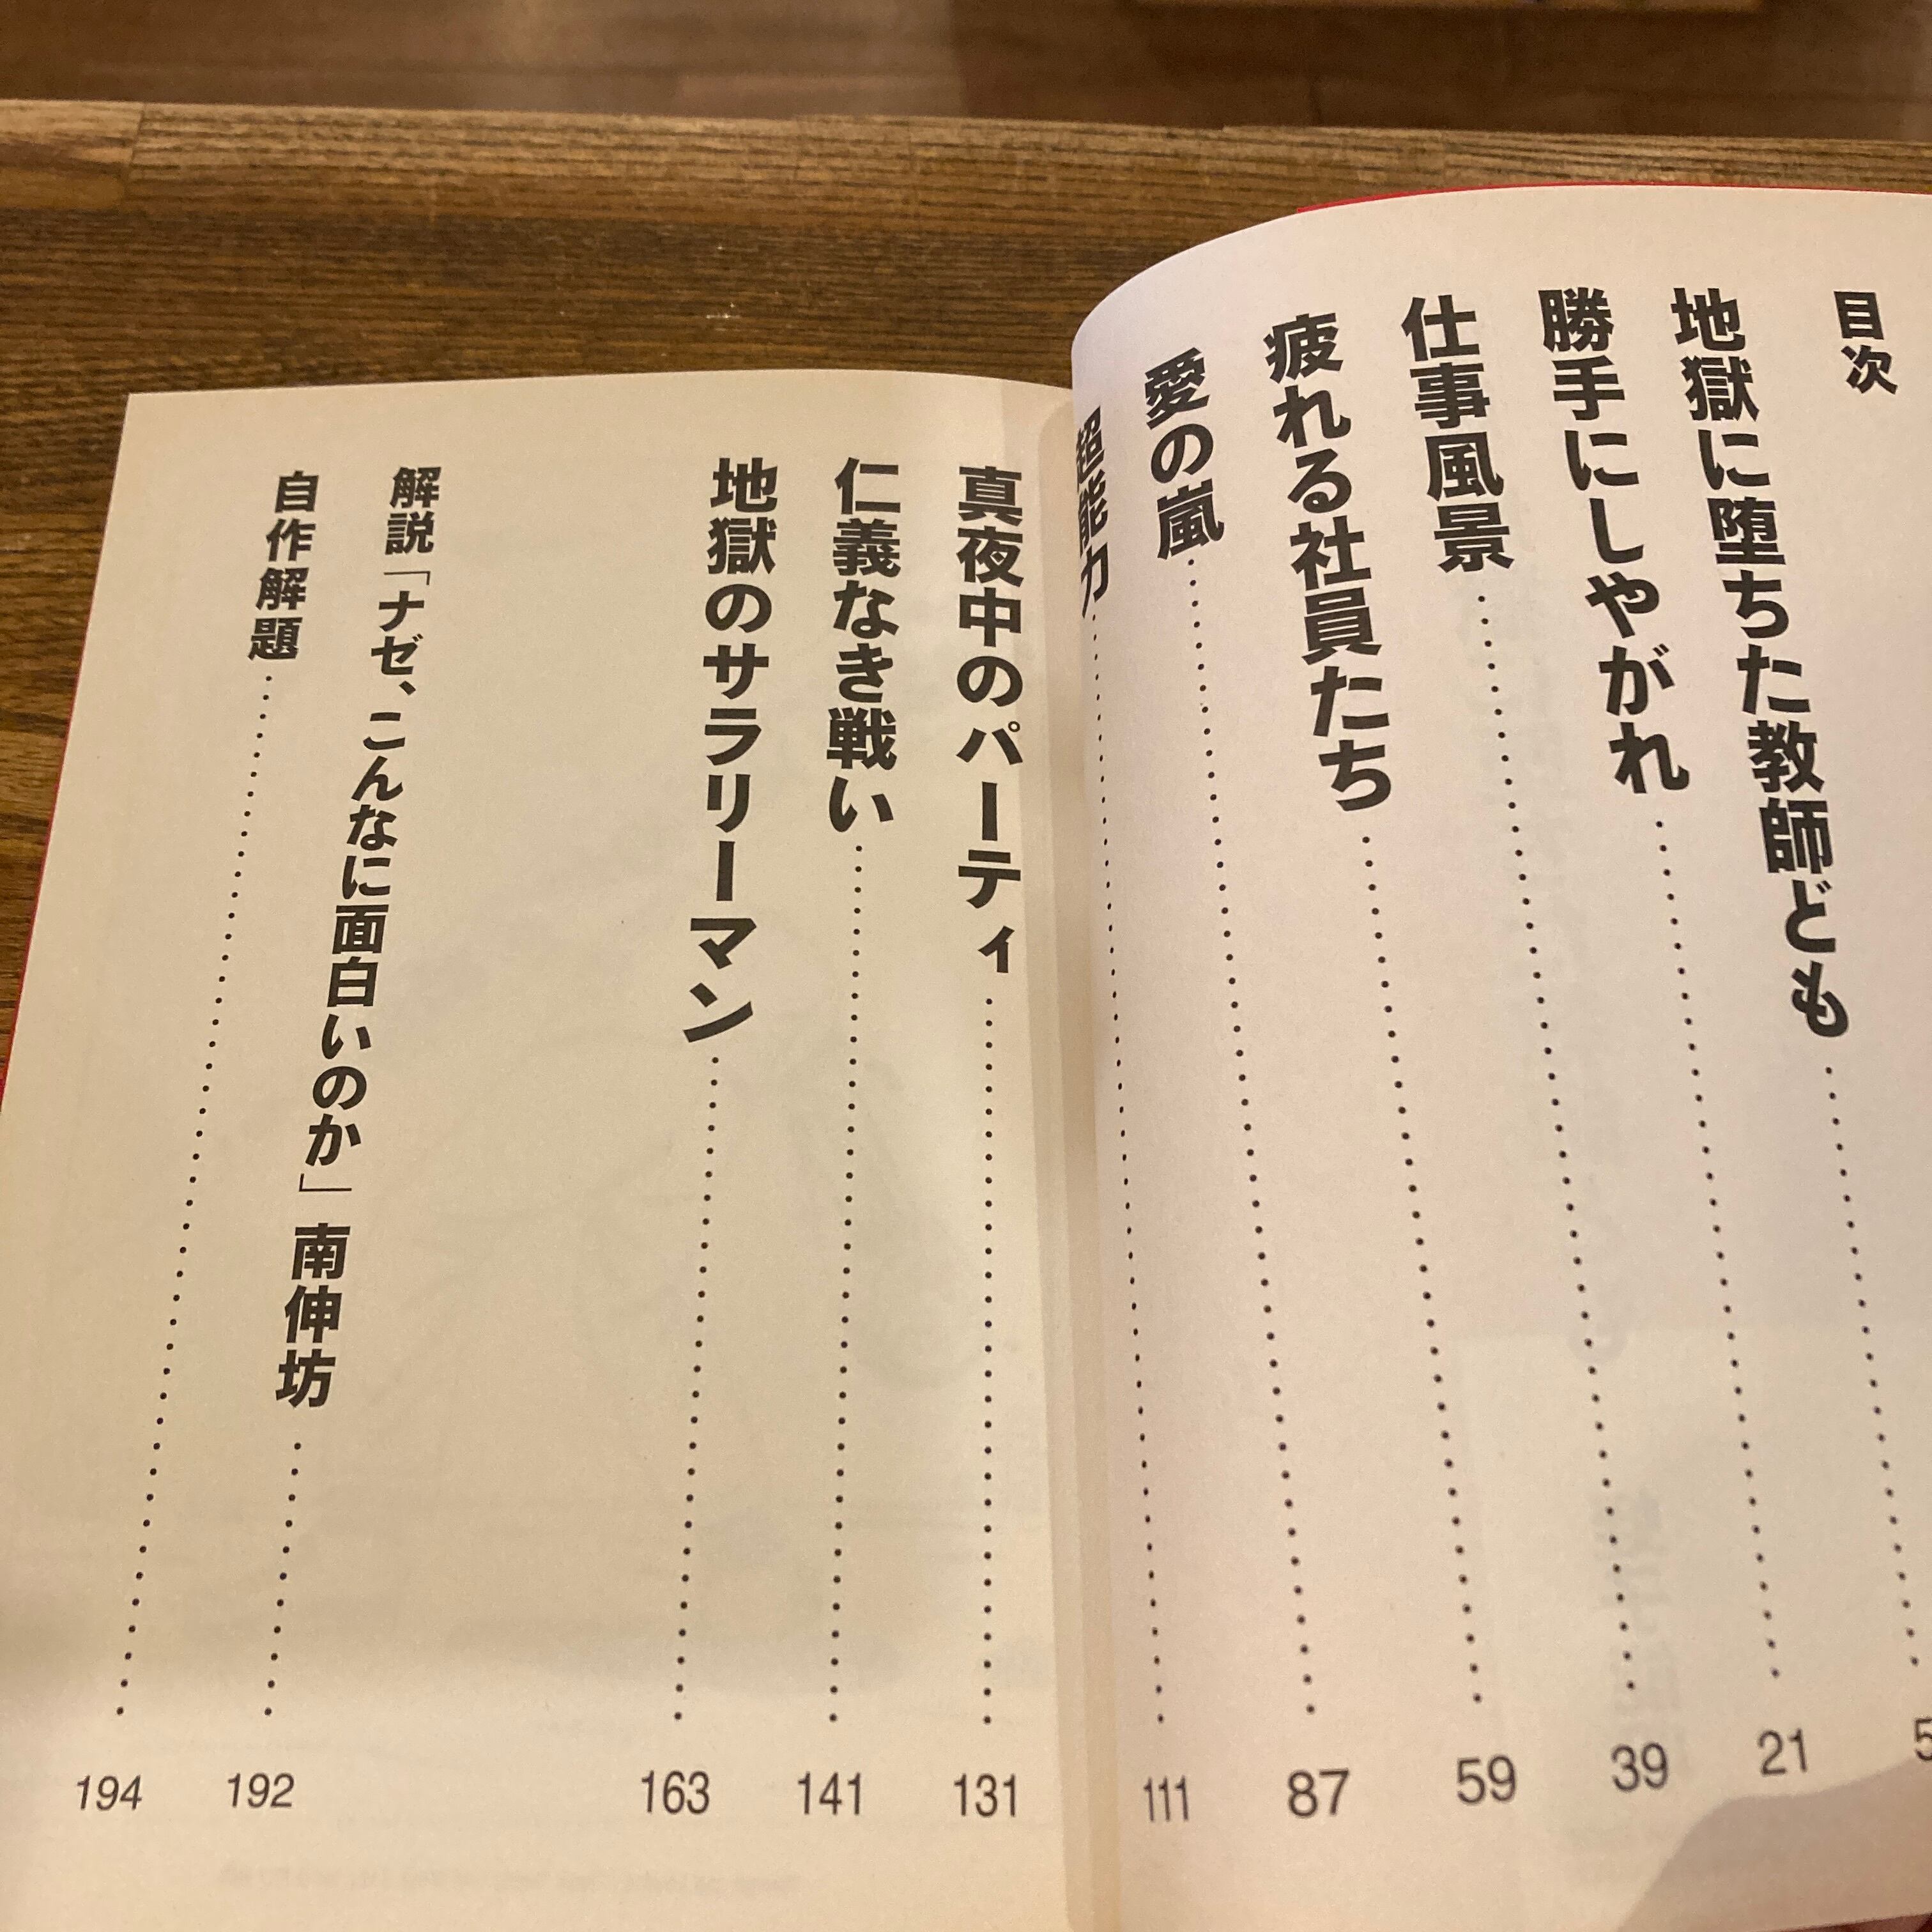 目次
地獄に堕ちた教師ども 5
勝手にしやがれ 21
仕事風景 39
疲れる社員たち 59
愛の嵐 87
超能力 111
真夜中のパーティ 131
仁義なき戦い 141
地獄のサラリーマン 163
解説「ナゼ、こんなに面白いのか」南伸坊 192
自作解題 194